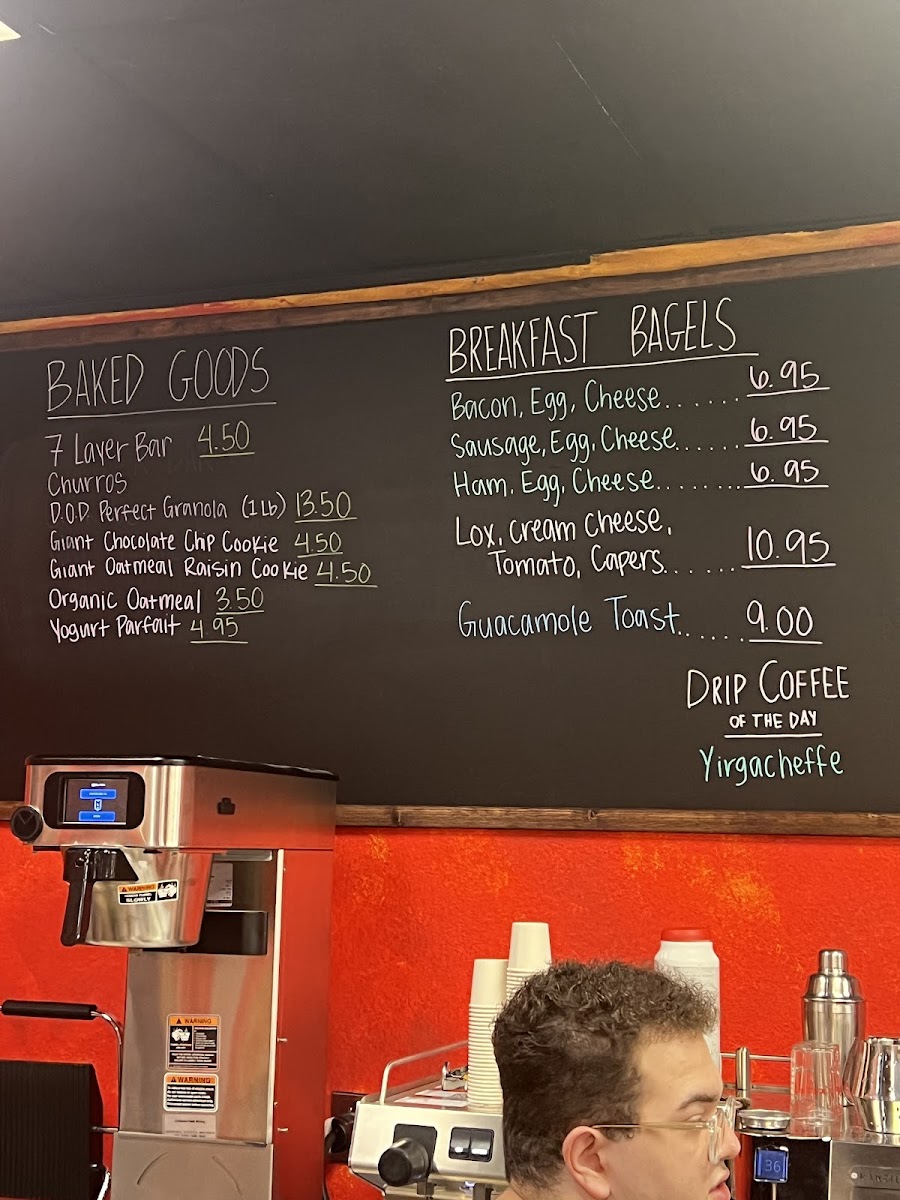 BAKED GOODS
7 Layer Bar 4.50
Churros
D.O.D. Perfect Granola (1Lb) 13.50
Giant Chocolate Chip Cookie 4.50
Giant Oatmeal Raisin Cookie 4.50
Organic Oatmeal 3.50
Yogurt Parfait 4.95
BREAKFAST BAGELS
Bacon, Egg, Cheese...... 6.95
Sausage, Egg, Cheese...... 6.95
Ham, Egg, Cheese........ 6.95
Lox, cream cheese,
Tomato, Capers...... 10.95
Guacamole Toast...... 9.00
DRIP COFFEE
OF THE DAY
Yirgacheffe
WARNING
SLOWLY
WARNING
WARNING
36